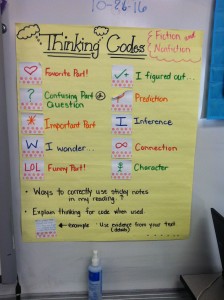 10-26-16
Thinking Codes
Fiction and
Nonfiction
♡ Favorite Part!
✓+ I figured out...
? Confusing Part
Question
Prediction
* Important Part
I Inference
W I wonder...
∞ Connection
LOL Funny Part!
Character
• Ways to correctly use sticky notes
in my reading?
• Explain thinking for code when used.
← example · Use evidence from your text
(details)